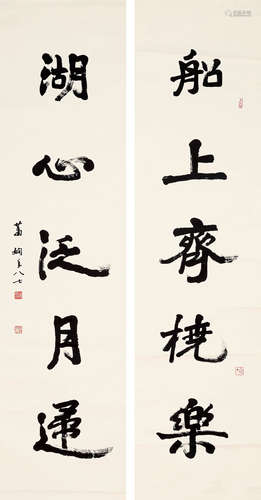 船上齊橈樂
湖心泛月歸
蕭嫻年八七